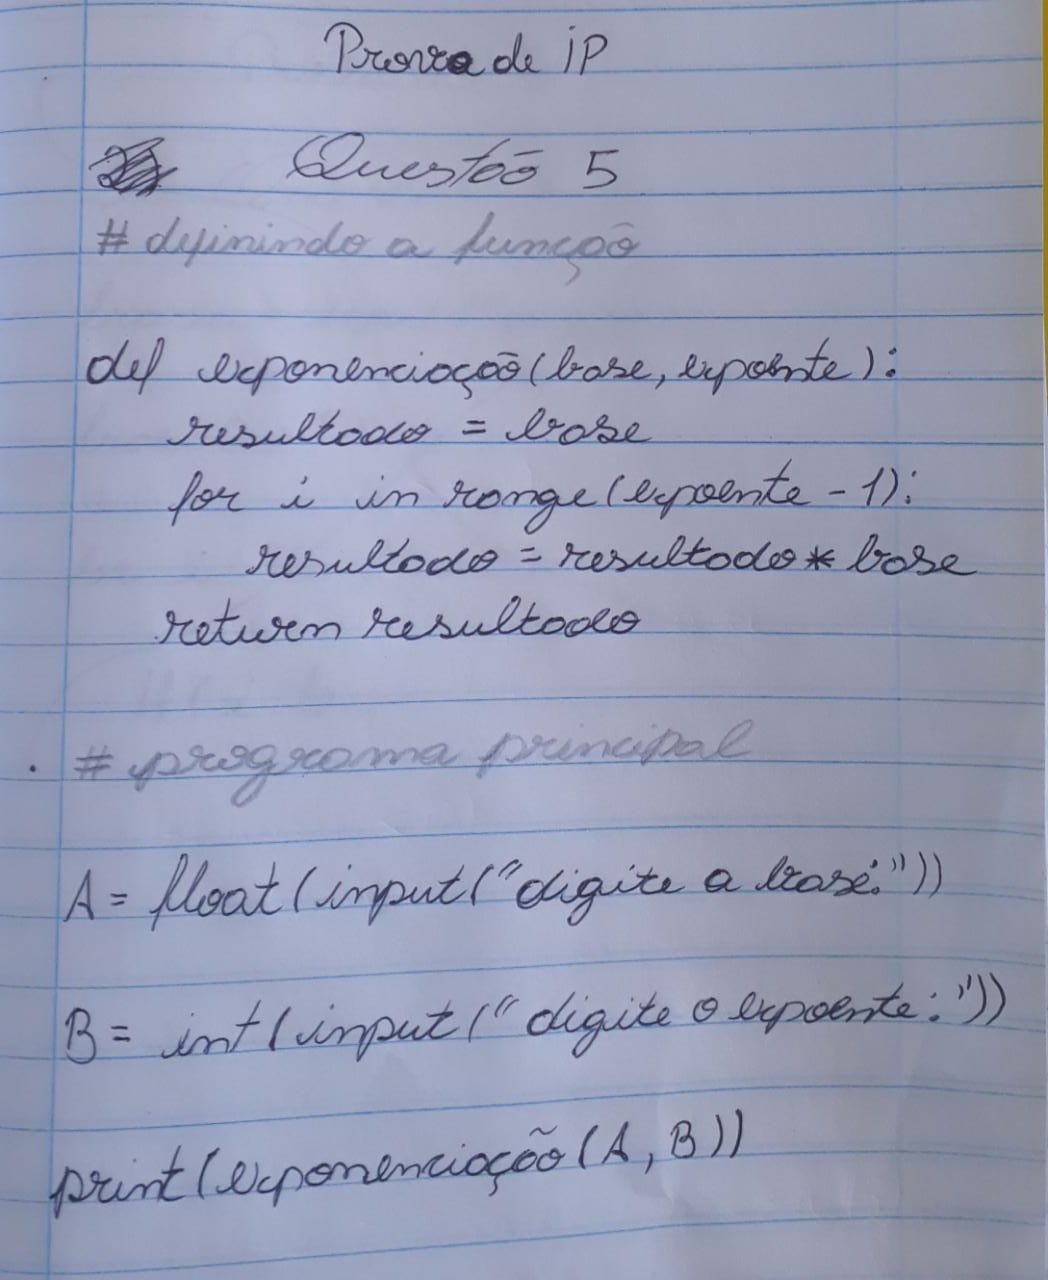 Prova de iP
Questão 5
# definindo a função
def exponenciação(base, expoente):
resultado = base
for i in range(expoente - 1):
resultado = resultado * base
return resultado
# programa principal
A = float(input("digite a base:"))
B = int(input("digite o expoente:"))
print(exponenciação(A, B))